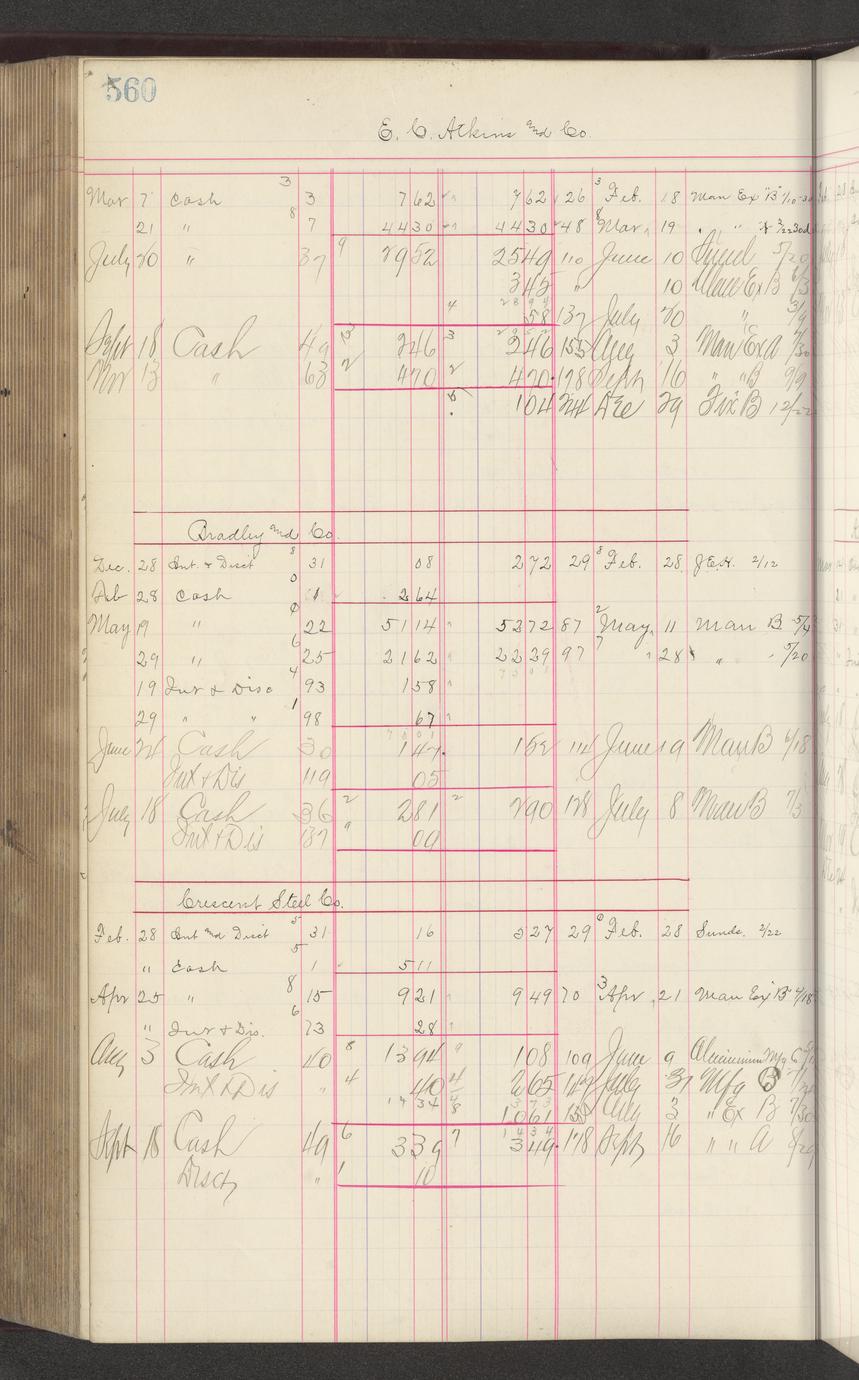 560
E. C. Atkins and Co.
3
Mar 7 Cash 3 762 762 26 3 Feb. 18 Man Ex "B" 1/10
8
21 " 7 4430 4430 48 8 Mar. 19 " "
July 20 " 37 9 2952 2549 110 June 10 5/20
345 " 10 Ex B 6/3
4 2894
58 137 July 20 "
2952
Sept 18 Cash 49 3 246 3 246 155 Aug 3 Man Ex A 7/30
Nov 13 " 63 2 470 2 470 178 Sept 16 " " B 9/9
104 224 Dec 29 Fix B 12/22
Bradley and Co.
Dec. 28 Int. & Disct 8 31 08 272 29 8 Feb. 28 J.E.H. 2/12
0
Feb 28 Cash 1 264
0
May 19 " 22 5114 5272 87 2 May 11 Man B 5/4
6
29 " 25 2162 2229 97 7 " 28 " " 5/20
4 7501
19 Int & Disc 93 158
1
29 " " 98 67
7501
June 24 Cash 30 147 152 114 June 19 Man B 6/18
Int & Dis 119 05
July 18 Cash 36 2 281 2 290 128 July 8 Man B 7/3
Int & Dis 137 " 09
Crescent Steel Co.
Feb. 28 Int and Disct 5 31 16 527 29 6 Feb. 28 Sunds. 2/22
5
" Cash 1 511
8
Apr 25 " 15 921 949 70 3 Apr. 21 Man Ex "B" 4/18
6
" Int & Dis. 73 28
Aug 3 Cash 40 8 1394 9 108 109 June 9 Aluminium Mfg Co
Int & Dis " 4 40 4 265 142 July 31 Mfg B
1434 8 1061 150 Aug 3 " Ex B 7/30
1434
Sept 18 Cash 49 6 339 7 349 178 Sept 16 " " A 8/29
Disct, " 1 10